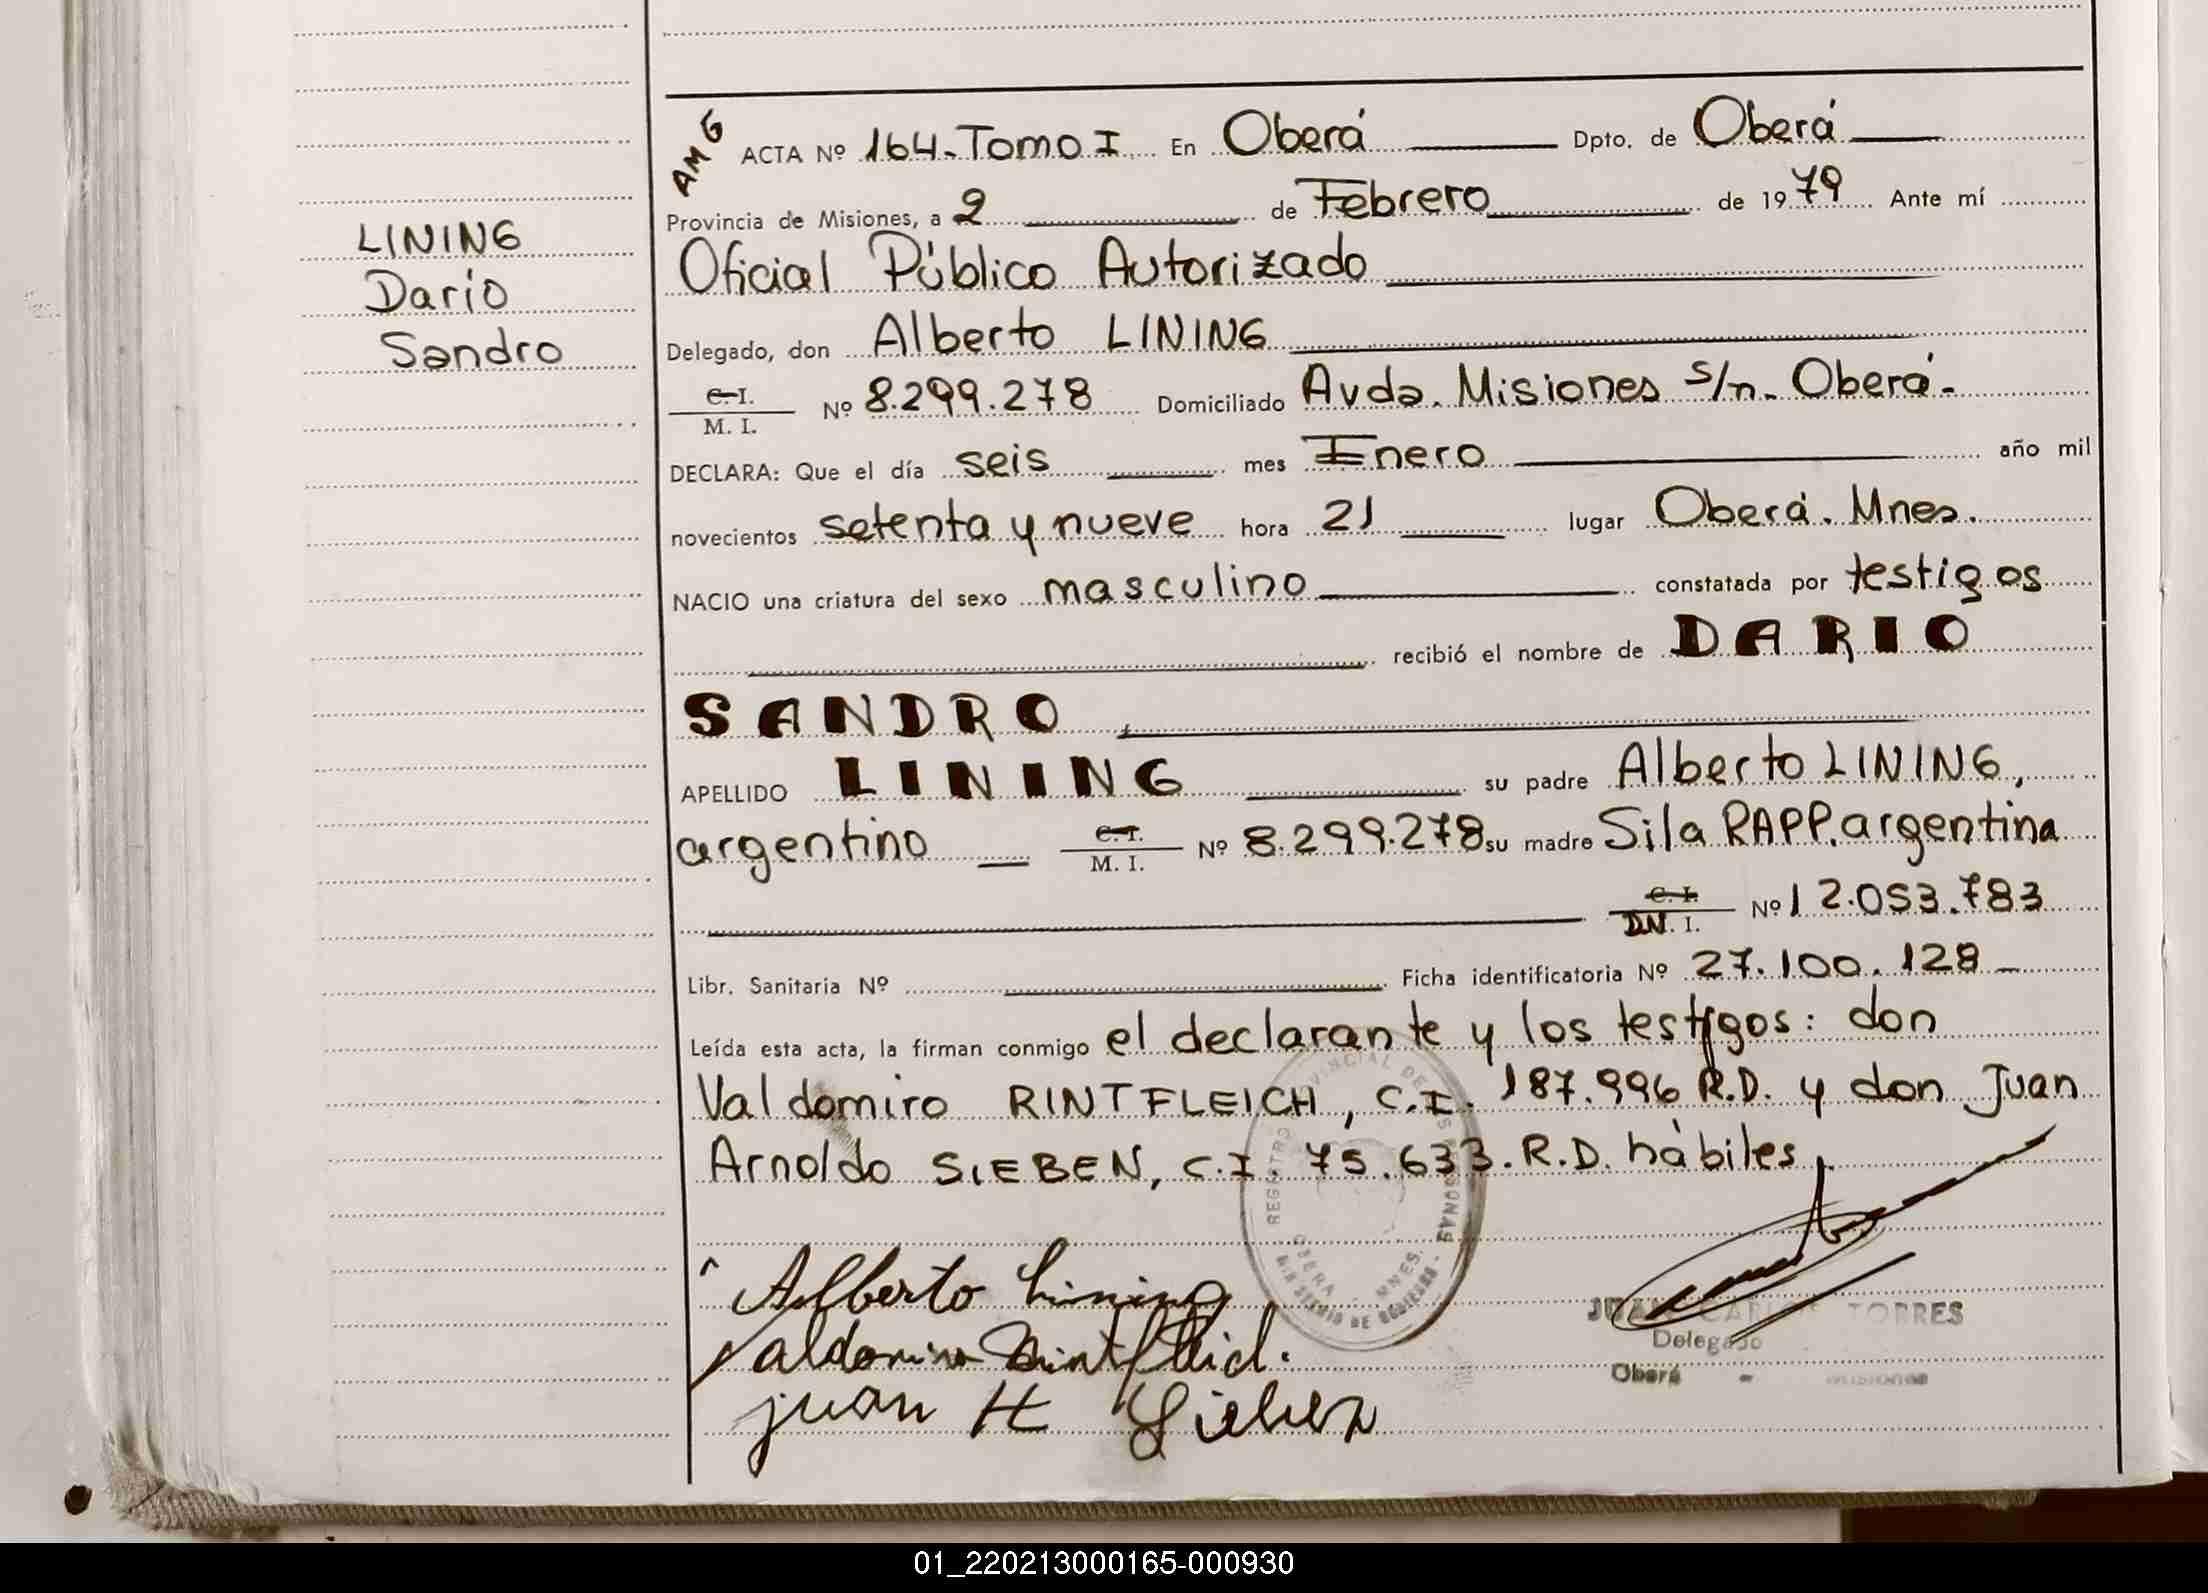 AMG
ACTA Nº 164-Tomo I En Oberá Dpto. de Oberá
Provincia de Misiones, a 2 de Febrero de 1979 Ante mí
Oficial Público Autorizado
LINING
Dario
Sandro
Delegado, don Alberto LINING
C. I. / M. I. Nº 8.299.278 Domiciliado Avda. Misiones s/n. Oberá-
DECLARA: Que el día seis mes Enero año mil
novecientos setenta y nueve hora 21 lugar Oberá. Mnes.
NACIO una criatura del sexo masculino constatada por testigos
recibió el nombre de DARIO
SANDRO
APELLIDO LINING su padre Alberto LINING,
argentino C. I. / M. I. Nº 8.299.278 su madre Sila RAPP. argentina
C. I. / DN. I. Nº 12.053.783
Libr. Sanitaria Nº Ficha identificatoria Nº 27.100.128-
Leída esta acta, la firman conmigo el declarante y los testigos: don
Valdomiro RINTFLEICH, C.I. 187.996 R.D. y don Juan
Arnoldo SIEBEN, C.I. 75.633. R.D. hábiles
REGISTRO PROVINCIAL DE LAS PERSONAS
OBERA - MNES.
MINISTERIO DE GOBIERNO
Alberto Lining
Juan H Sieben
JUAN CARLOS TORRES
Delegado
Oberá - Misiones
01_220213000165-000930